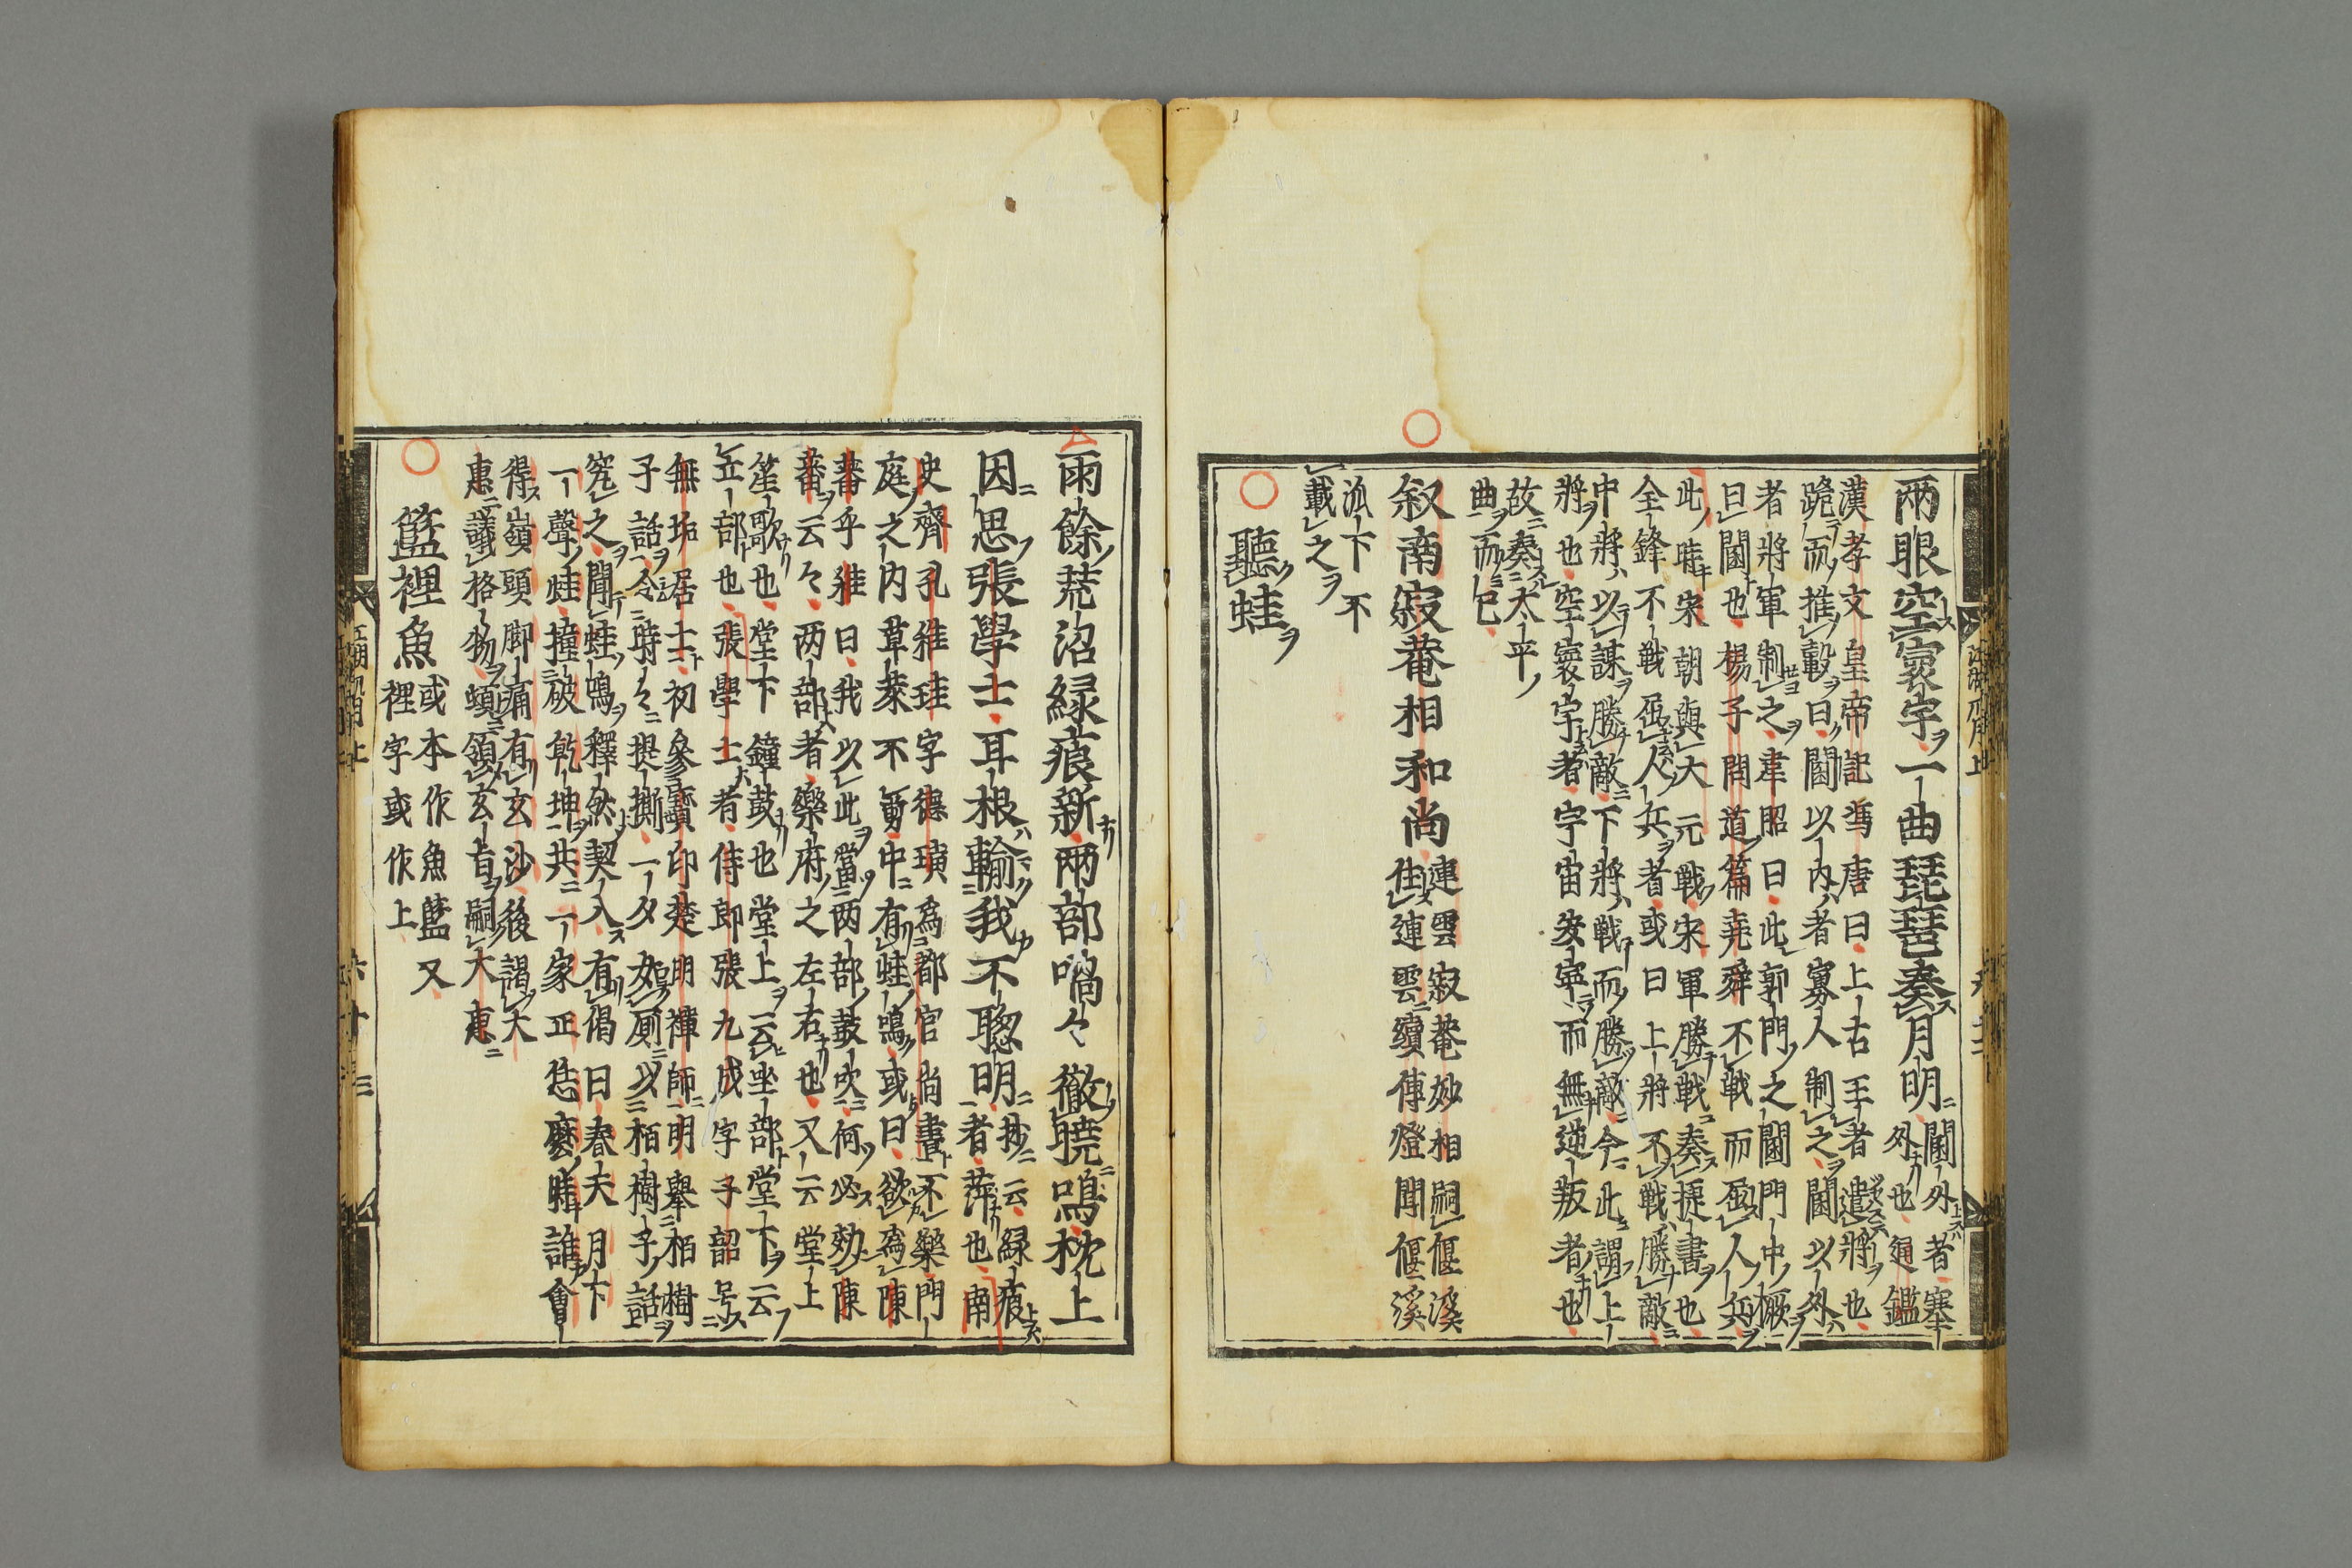 兩眼空寰宇一曲琵琶奏月明
閫外者塞
外也通鑑
漢孝文皇帝記馮唐曰上古王者遣將也
跪而推轂曰閫以内者寡人制之閫以外
者將軍制之韋昭曰此郭門之閫門中橛
曰閫也楊子問道篇堯舜不戰而屈人兵
此時宋朝與大元戰宋軍勝戰奏捷書也
全鋒不戰屈人兵者或曰上將不戰勝敵
中將以謀勝敵下將戰而勝敵今此謂上
將也空寰宇者宇宙安寧而無逆叛者也
故奏太平
曲而已
叙南寂菴相和尚
連雲寂菴妙相嗣偃溪
住連雲續傳燈聞偃溪
派下不
載之
聽蛙
雨餘荒沼緑痕新兩部喎々徹曉鳴枕上
因思張學士耳根輸我不聰明
抄云緑痕
者萍也南
史齊孔稚珪字德璋爲都官尚書不樂門
庭之内草萊不剪中有蛙鳴或曰欲爲陳
蕃乎稚曰我以此當两部鼓吹何必効陳
蕃云々两部者樂府之左右也又云堂上
笙歌也堂下鐘鼓也堂上云坐部堂下云
立部也張學士者侍郎張九成字子韶号
無垢居士初參寶印楚明禪師明舉栢樹
子話令時々提撕一夕如厠以栢樹子話
究之聞蛙鳴釋然契入有偈曰春天月下
一聲蛙撞破乾坤共一家正恁麼時誰會
得嶺頭脚痛有玄沙後謁大
惠議格物頓領玄旨嗣大惠
籃裡魚
或本作魚籃又
裡字或作上
六十三